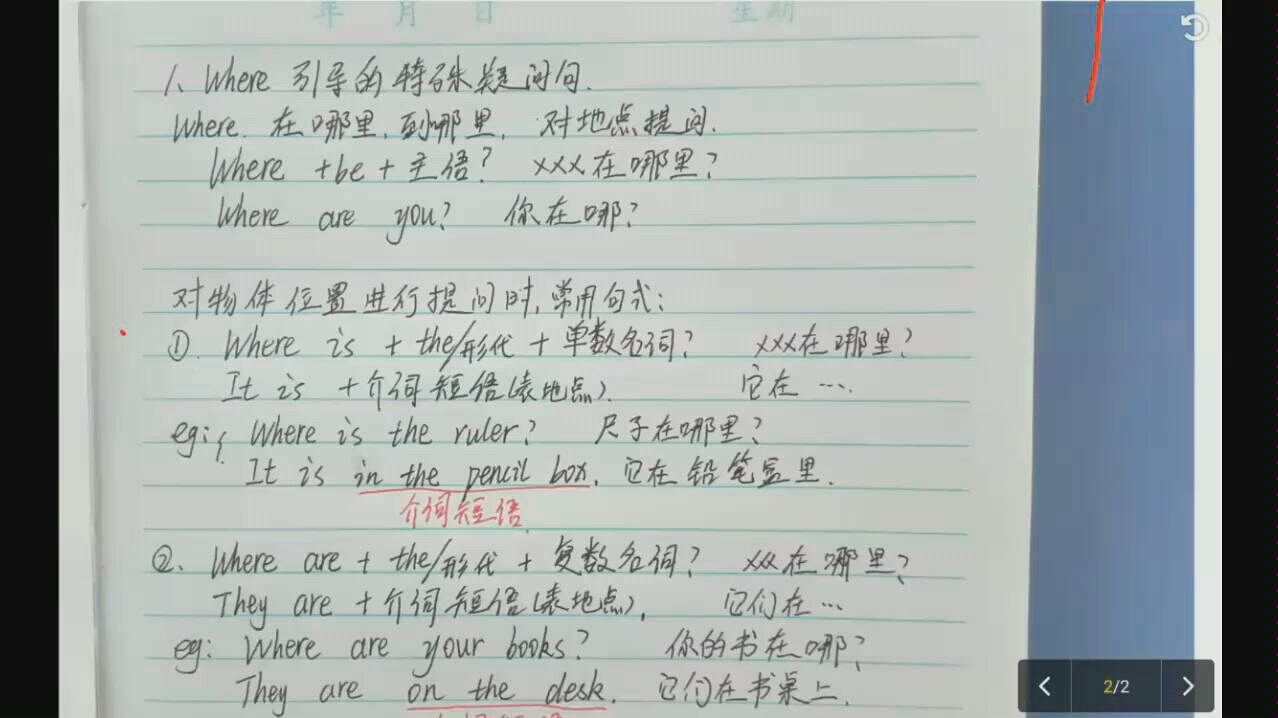 年 月 日 星期
1、Where 引导的特殊疑问句.
Where. 在哪里,到哪里, 对地点提问.
Where +be + 主语? xxx在哪里?
Where are you? 你在哪?
对物体位置进行提问时,常用句式:
①. Where is + the/形代 + 单数名词? xxx在哪里?
It is +介词短语(表地点). 它在 ….
eg: Where is the ruler? 尺子在哪里?
It is in the pencil box. 它在铅笔盒里.
介词短语
②. Where are + the/形代 + 复数名词? xxx在哪里?
They are +介词短语(表地点). 它们在…
eg: Where are your books? 你的书在哪?
They are on the desk. 它们在书桌上.
2/2